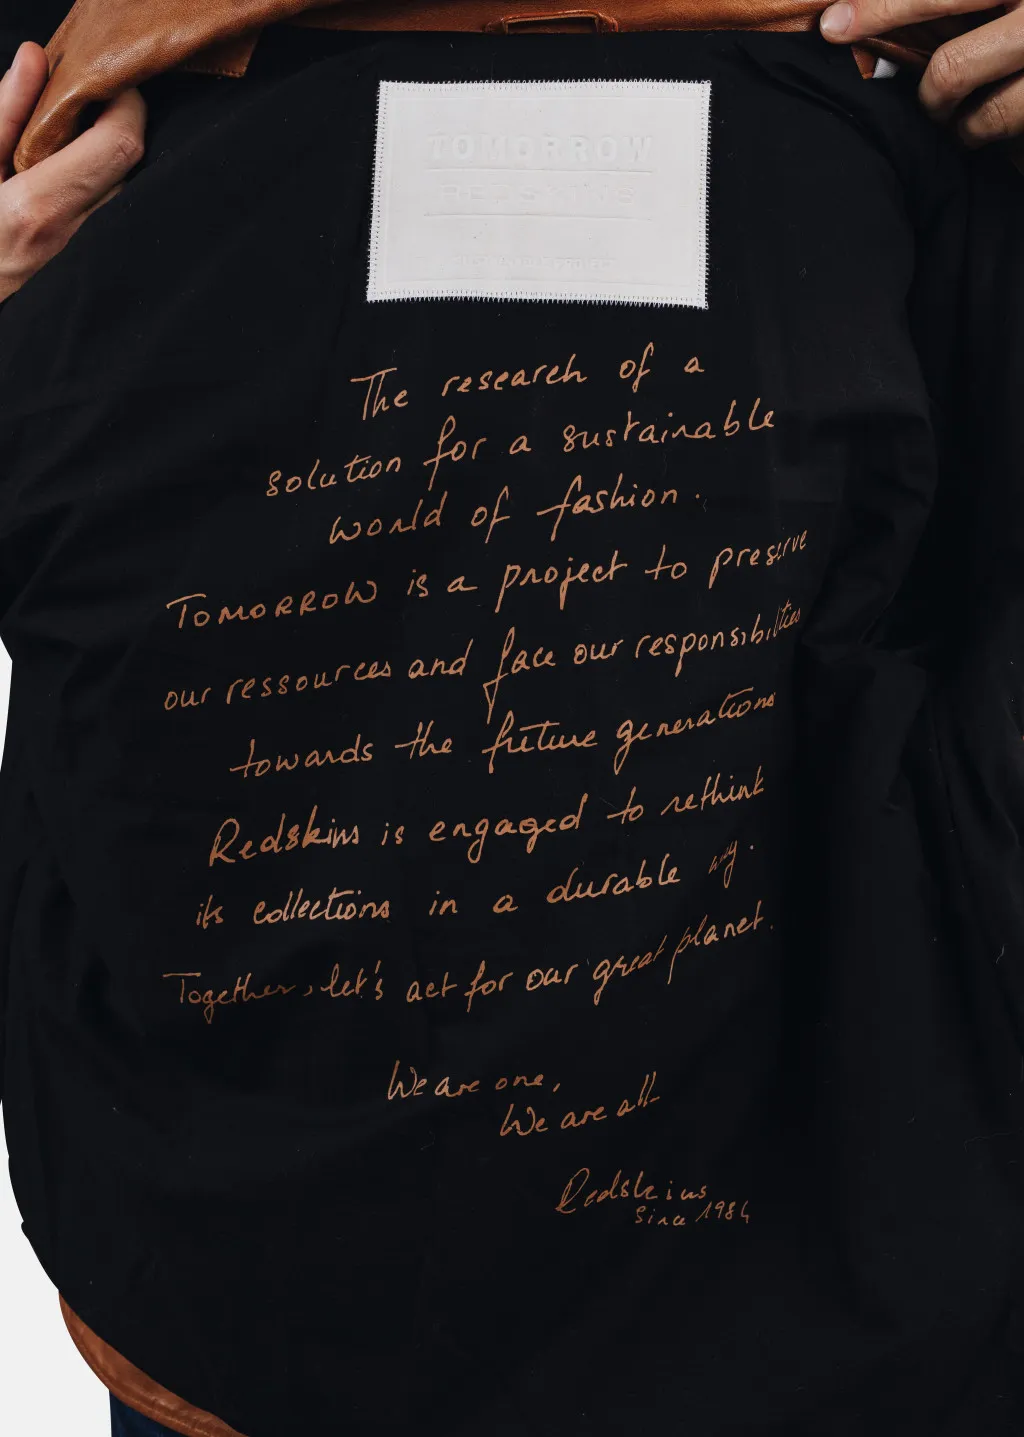 TOMORROW
REDSKINS
The research of a
solution for a sustainable
world of fashion.
TOMORROW is a project to preserve
our ressources and face our responsibilities
towards the future generations
Redskins is engaged to rethink
its collections in a durable way.
Together, let's act for our great planet.
We are one,
We are all
Redskins
Since 1984